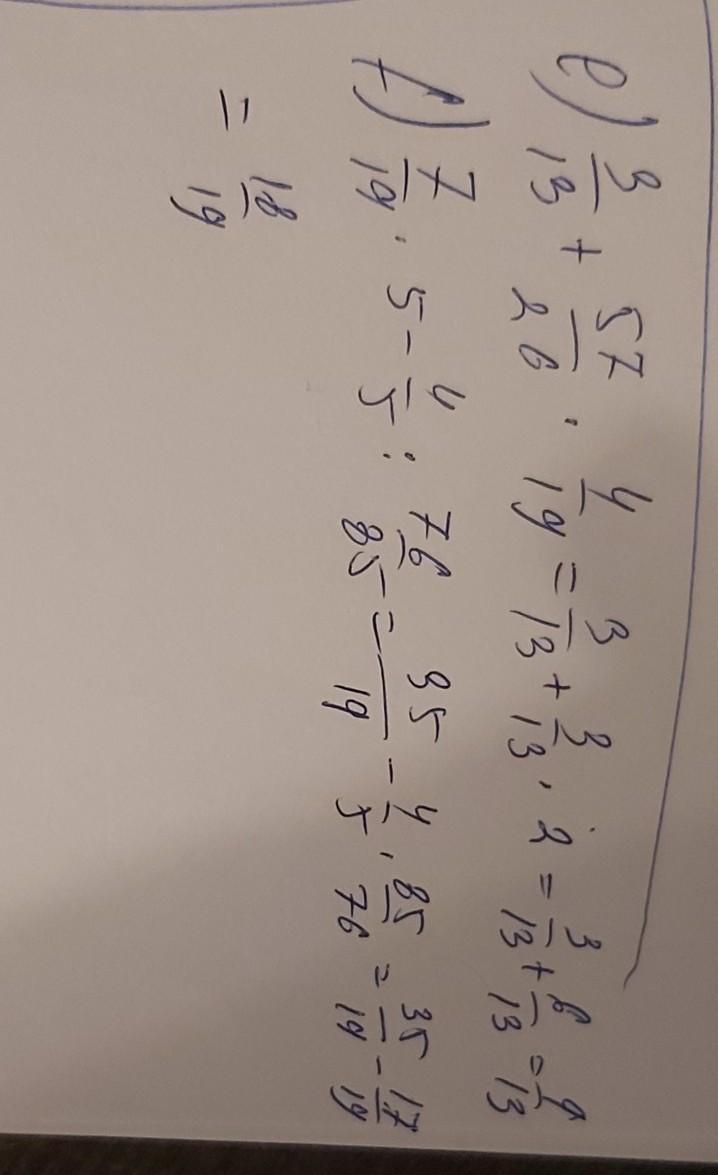 e) 3/13 + 57/26 · 4/19 = 3/13 + 3/13 · 2 = 3/13 + 6/13 = 9/13
f) 7/19 · 5 - 4/5 : 76/85 = 35/19 - 4/5 · 85/76 = 35/19 - 17/19
= 18/19